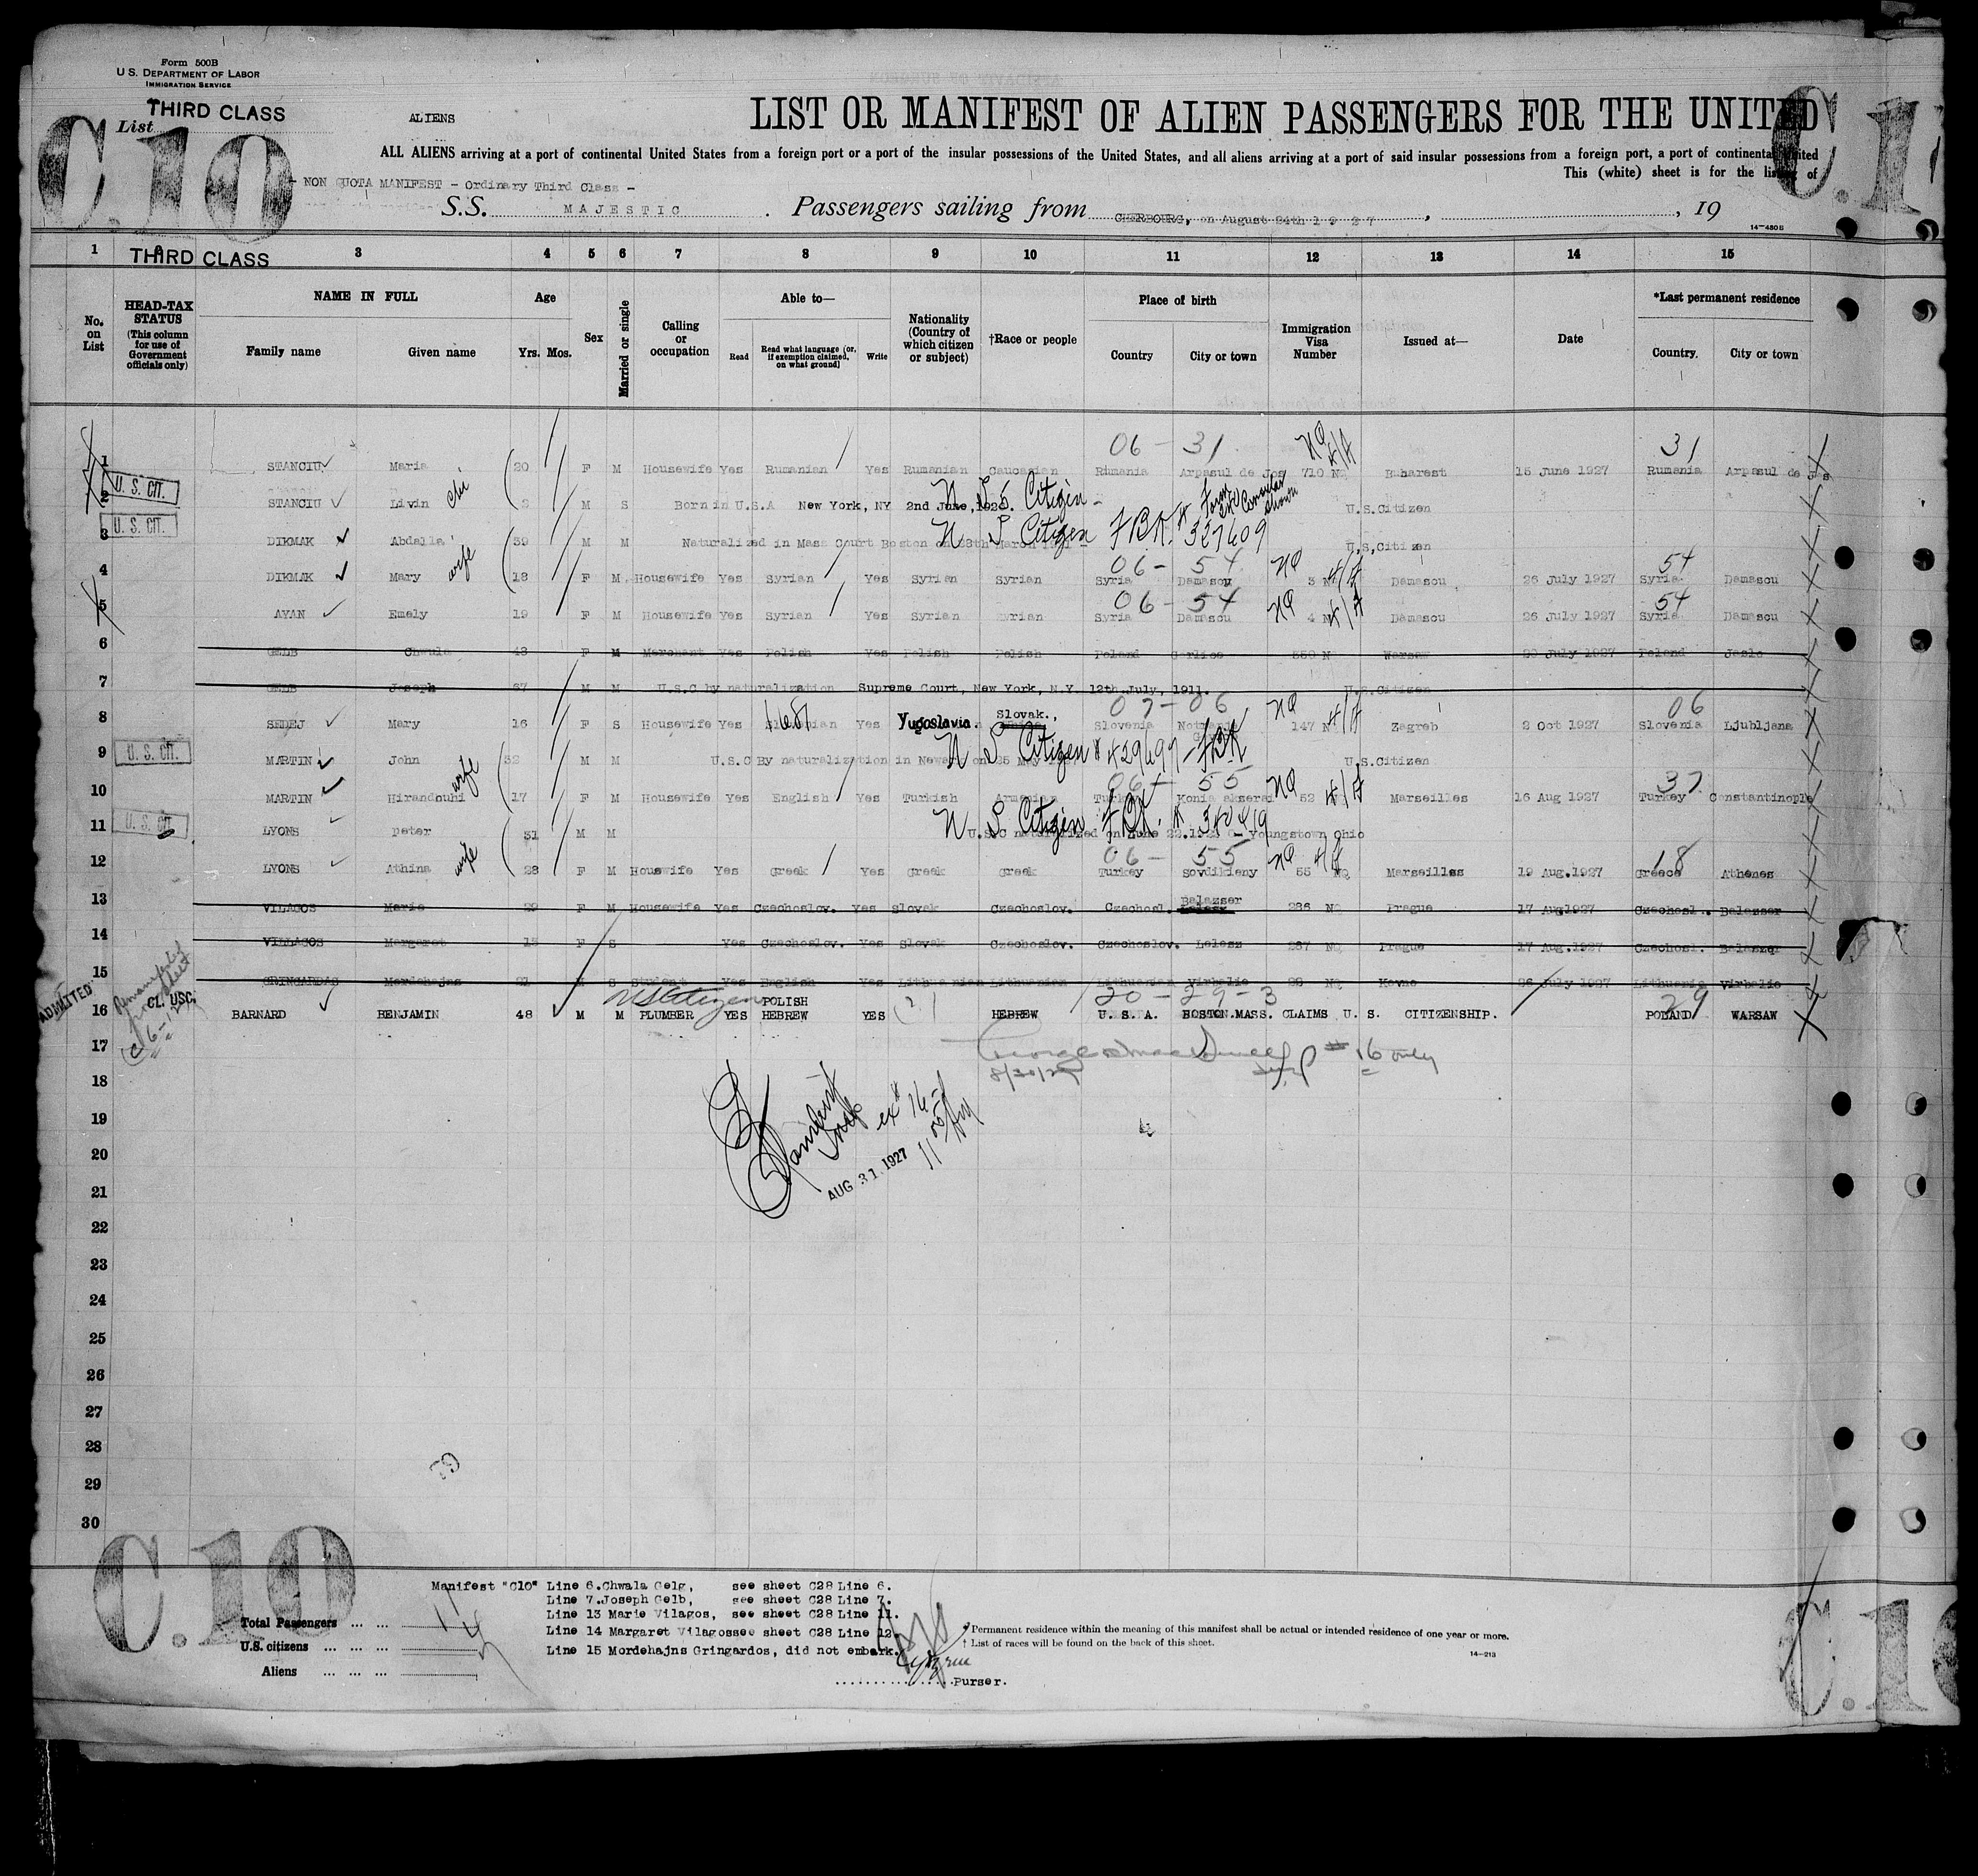 Form 500B
U. S. DEPARTMENT OF LABOR
IMMIGRATION SERVICE
THIRD CLASS
List
C.10
ALIENS
LIST OR MANIFEST OF ALIEN PASSENGERS FOR THE UNITED
C.1
ALL ALIENS arriving at a port of continental United States from a foreign port or a port of the insular possessions of the United States, and all aliens arriving at a port of said insular possessions from a foreign port, a port of continental United
This (white) sheet is for the listing of
- NON QUOTA MANIFEST - Ordinary Third Class -
S.S. MAJESTIC . Passengers sailing from CHERBOURG, on August 24th 1 9 2 7 , , 19
14-480B
1 2 THIRD CLASS 3 4 5 6 7 8 9 10 11 12 13 14 15
No. on List
HEAD-TAX STATUS (This column for use of Government officials only)
NAME IN FULL
Family name Given name
Age
Yrs. Mos.
Sex
Married or single
Calling or occupation
Able to—
Read Read what language (or, if exemption claimed, on what ground) Write
Nationality (Country of which citizen or subject)
†Race or people
Place of birth
Country City or town
Immigration Visa Number
Issued at—
Date
*Last permanent residence
Country. City or town
06 - 31 NQ 31
1 STANCIU Maria 20 F M Housewife Yes Rumanian Yes Rumanian Caucasian Rumania Arpasul de Jos 710 NQ Buharest 15 June 1927 Rumania Arpasul de Jos
U. S. CIT.
2 STANCIU Livin M S Born in U.S.A New York, NY 2nd June, U.S.Citizen
U S Citizen
U. S. CIT.
3 DIKMAK Abdalla 39 M M Naturalized in Mass Court Boston on 28th March U.S.Citizen
U S Citizen 327609
06 - 54 NQ 54
4 DIKMAK Mary wife 18 F M Housewife Yes Syrian Yes Syrian Syrian Syria Damascu 3 Damascu 26 July 1927 Syria Damascu
06 - 54 NQ 54
5 AYAN Emely 19 F M Housewife Yes Syrian Yes Syrian Syrian Syria Damascu 4 Damascu 26 July 1927 Syria Damascu
6 GELB Chwula 43 F M Merchant Yes Polish Yes Polish Polish Poland Gorlice 550 N Warsaw 20 July 1927 Poland Jaslo
7 GELB Joseph 67 M M U.S.C by naturalization Supreme Court, New York, N.Y. 12th July, 1911. U.S.Citizen
07 - 06 NQ 06
8 SEDEJ Mary 16 F S Housewife Yes Yes Yugoslavia. Slovak., Slovenia 147 N Zagreb 2 Oct 1927 Slovenia Ljubljana
U. S. CIT.
9 MARTIN John 32 M M U.S.C By naturalization in Newark on 25 May U.S.Citizen
U S Citizen # 429699
06 - 55 NQ 37
10 MARTIN Hirandouhi wife 17 F M Housewife Yes English Yes Turkish Armenian Turkey Konia akserai 52 Marseilles 16 Aug 1927 Turkey Constantinople
U. S. CIT.
11 LYONS peter 31 M M U.S.C naturalized on June 22. Youngstown Ohio
U S Citizen
06 - 55 NQ 18
12 LYONS Athina wife 28 F M Housewife Yes Greek Yes Greek Greek Turkey Sovdikieny 55 NQ Marseilles 19 Aug.1927 Greece Athenes
13 VILAGOS Marie 29 F M Housewife Yes Czechoslov. Yes Slovak Czechoslov. Czechosl. Balazser 286 NQ Prague 17 Aug1927 Czechosl. Balazser
14 VILLAGOS Margaret 15 F S Yes Czechoslov. Yes Slovak Czechoslov. Czechoslov. Lelesz 287 NQ Prague 17 Aug.1927 Czechosl. Balazser
15 GRINGARDAS Mordehajas 21 M S Student Yes English Yes Lithuanian Lithuanian Lithuanian Virbalis 28 NQ Kovno 26 July 1927 Lithuania Virbalis
ADMITTED CL. USC. US Citizen POLISH 20 - 29 - 3 29
16 BARNARD BENJAMIN 48 M M PLUMBER YES HEBREW YES HEBREW U. S. A. BOSTON.MASS. CLAIMS U. S. CITIZENSHIP. POLAND WARSAW
17
# 16 only
8/30/27
18
19
20
21
AUG 31 1927
22
23
24
25
26
27
28
29
30
C.10
Manifest "C10" Line 6.Chwala Gelg, see sheet C28 Line 6.
Line 7.Joseph Gelb, see sheet C28 Line 7.
Line 13 Marie Vilagos, see sheet C28 Line 11.
Line 14 Margaret Vilagossee sheet C28 Line 12.
Line 15 Mordehajns Gringardos, did not embark.
Total Passengers ... ...
U.S. citizens ... ... ...
Aliens ... ... ...
* Permanent residence within the meaning of this manifest shall be actual or intended residence of one year or more.
† List of races will be found on the back of this sheet.
14-213
Purser.
C.10